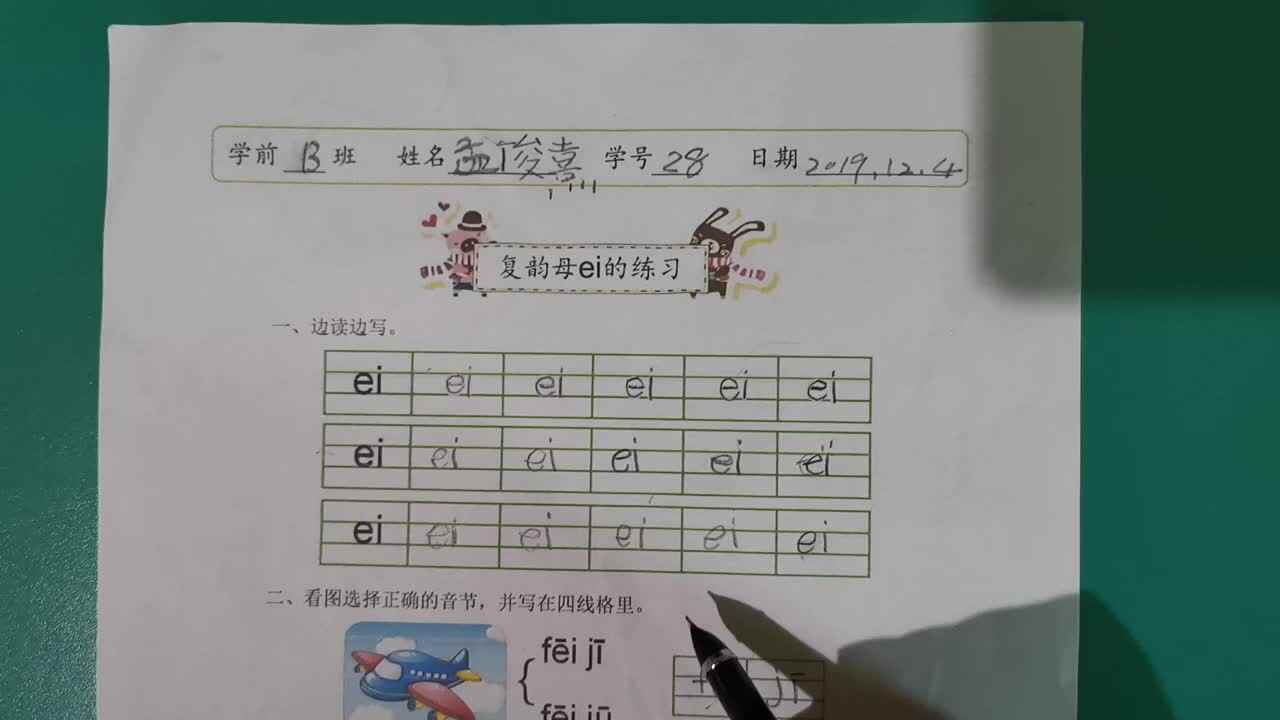 学前 B 班 姓名 孟俊熹 学号 28 日期 2019.12.4
复韵母ei的练习
一、边读边写。
ei ei ei ei ei ei
ei ei ei ei ei ei
ei ei ei ei ei ei
二、看图选择正确的音节，并写在四线格里。
fēi jī
jī